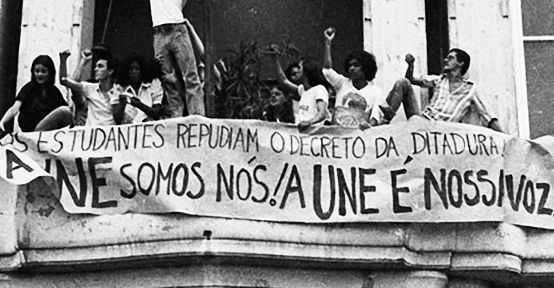 OS ESTUDANTES REPUDIAM O DECRETO DA DITADURA!
A UNE SOMOS NÓS! A UNE É NOSSA VOZ